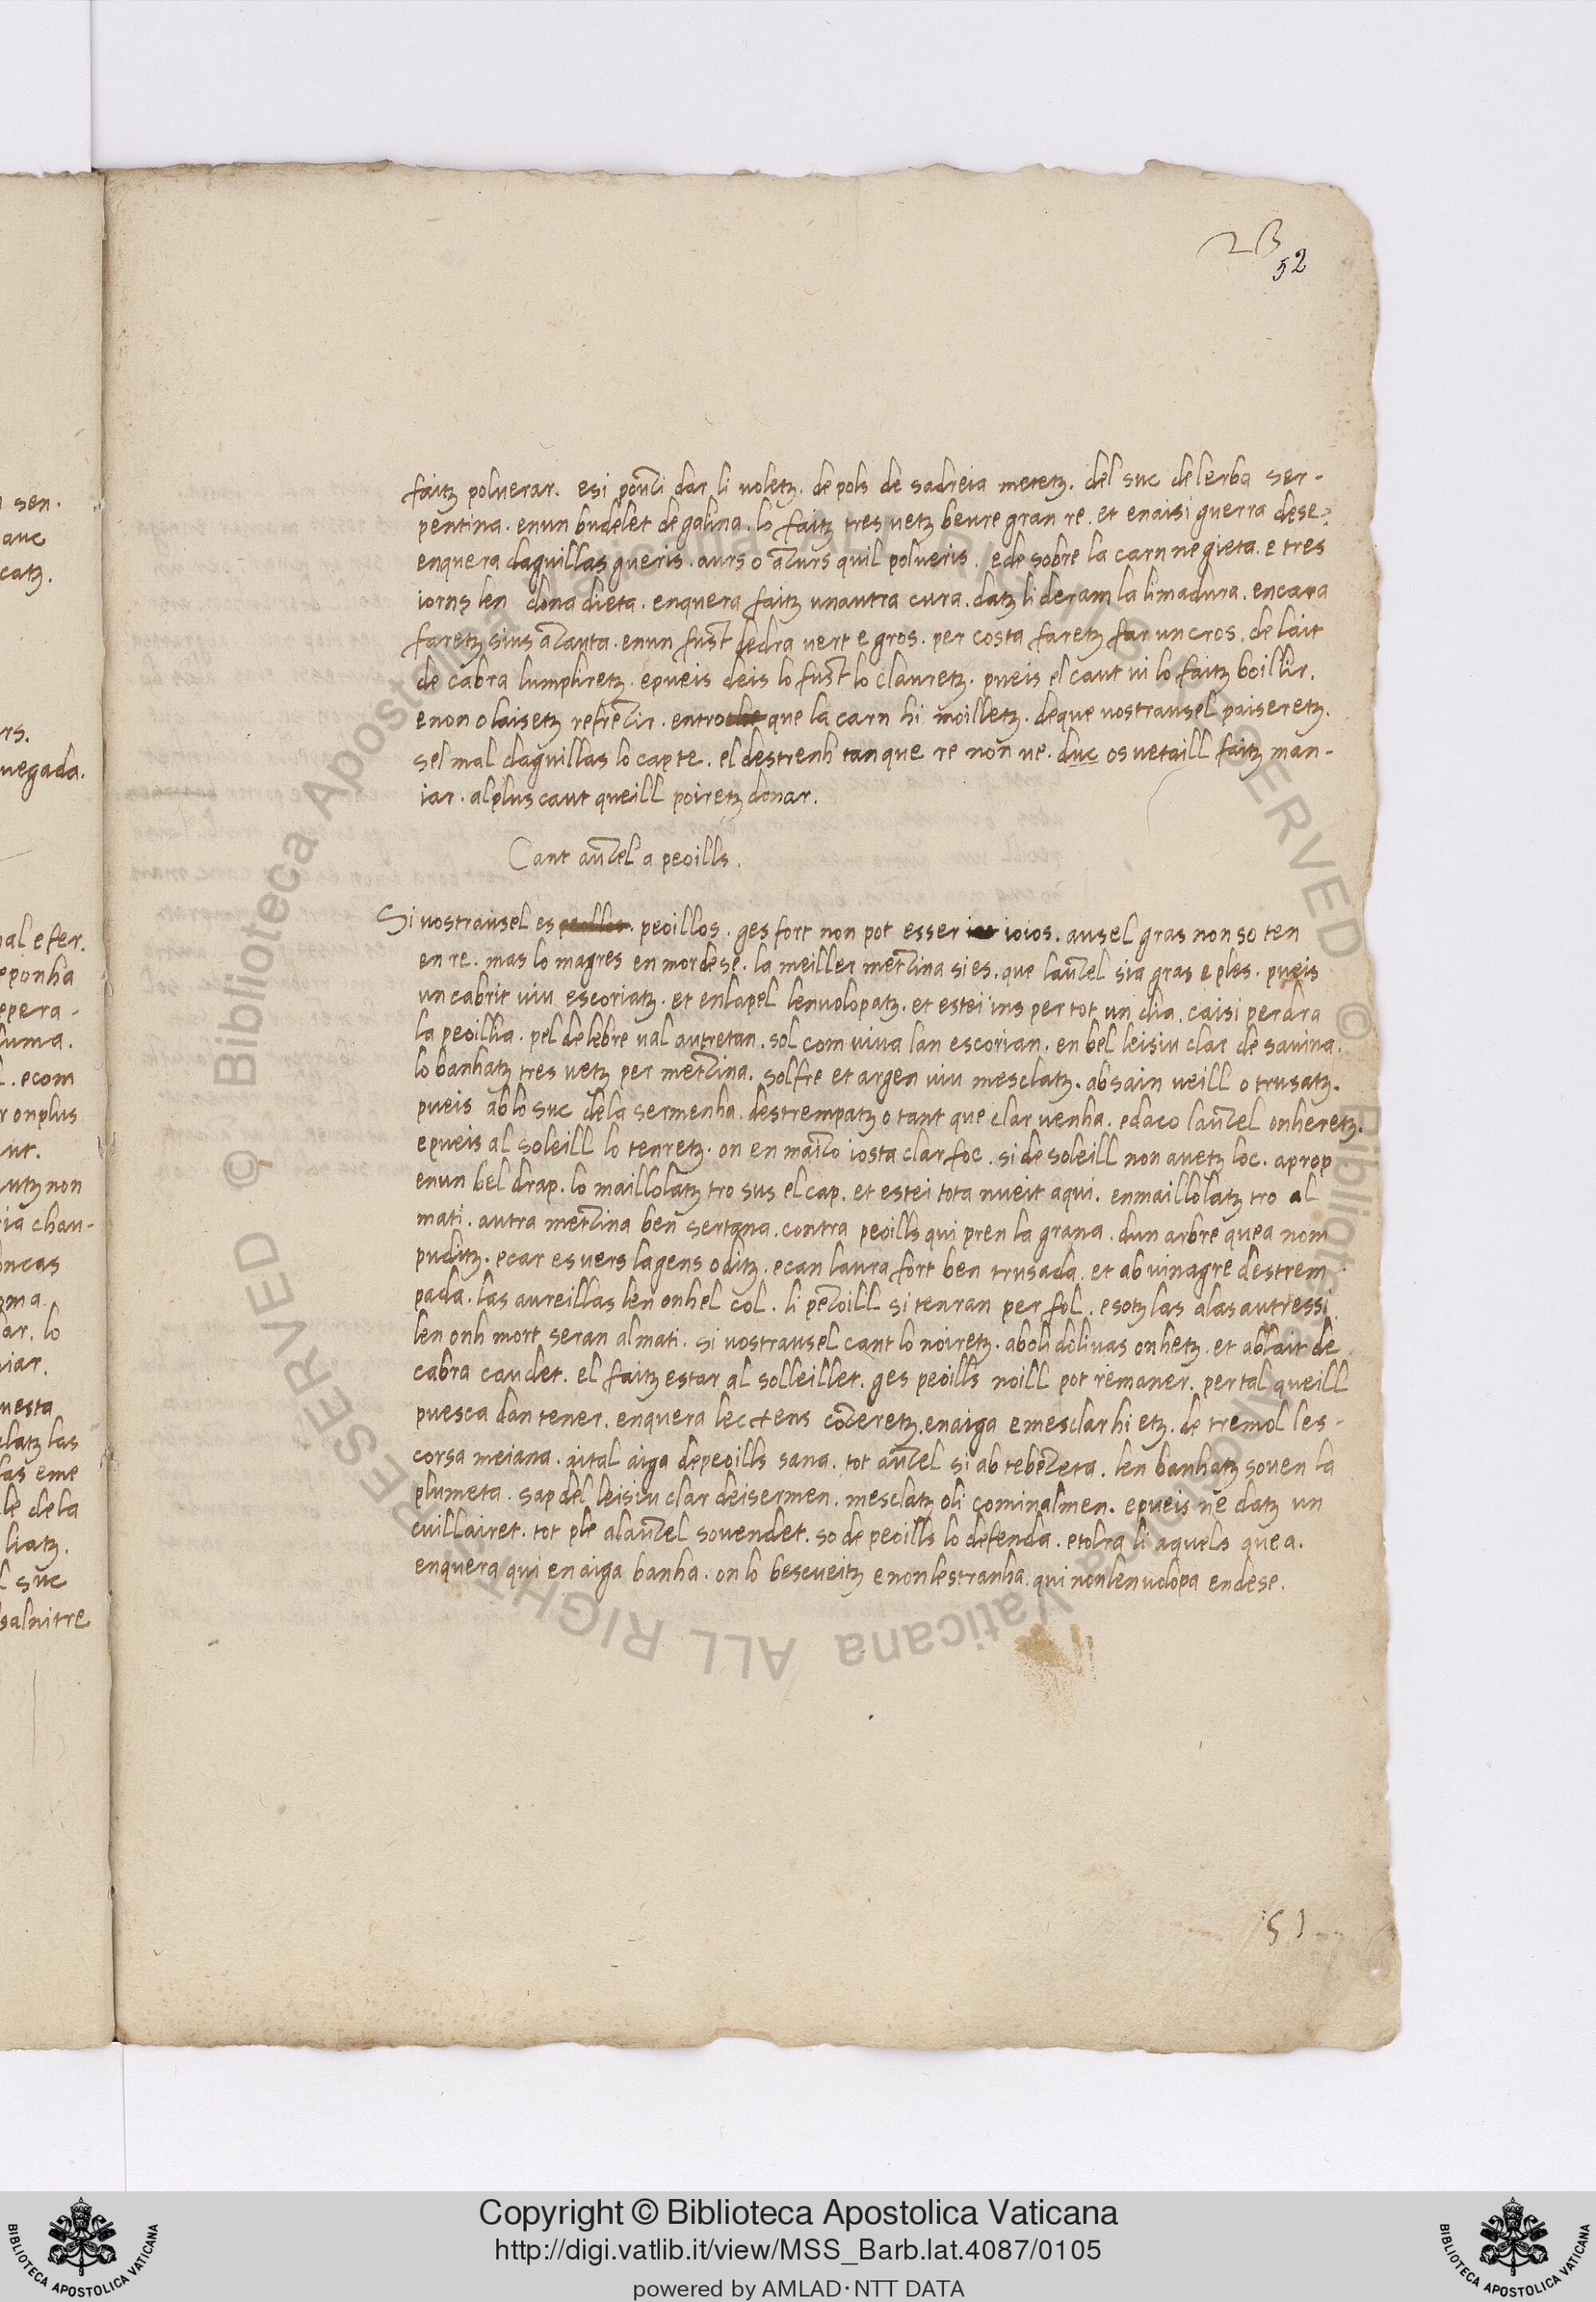 23
52
faitz polverar. esi ponçi dar li voletz. de pols de sadreia metetz. del suc de lerba ser-
pentina. enun budelet de galina. lo faitz tres vetz beure gran re. et enaisi guerra dese.
enquera daguillas gueris. aurs o açurs quil polveris. e de sobre la carn ne gieta. e tres
iorns len dona dieta. enquera faitz unautra cura. datz li deram la limadura. encara
faretz sius açauta. enun fust dedra vert e gros. per costa faretz far un cros. de lait
de cabra lumplretz. epueis deis lo fust lo clauretz. pueis el caut vi lo faitz boillir.
enon o laisetz refreçir. entro que la carn hi moilletz. deque vostrausel paiseretz.
sel mal daguillas lo cap te. el destrenh tan que re non ve. duc os vetaill faitz man-
iar. alplus caut queill poiretz donar.
Cant auçel a peoills.
Si vostrausel es peoillos. peoillos. ges fort non pot esser ioios. ausel gras non so ten
en re. mas lo magres en mordese. la meiller meçina si es. que lauçel sia gras e ples. pueis
un cabrit viu escoriatz. et enlapel lenvolopatz. et estei ins per tot un dia. caisi perdra
la peoillia. pel de lebre val autretan. sol com viva lan escorian. en bel leisiu clar de savina.
lo banhatz tres vetz per meçina. solfre et argen viu mesclatz. absain veill o trusatz.
pueis ablo suc dela sermenha. destrempatz o tant que clar venha. edaco lauçel onheretz.
epueis al soleill lo tenretz. on en maiço iosta clar foc. si de soleill non avetz loc. aprop
enun bel drap. lo maillolatz tro sus el cap. et estei tota nueit aqui. enmaillolatz tro al
mati. autra meçina ben sertana. contra peoills qui pren la grana. dun arbre quea nom
puditz. ecar es vers lagens oditz. ecan laura fort ben trusada. et ab vinagre destrem
pada. las aureillas len onhel col. li peçoill si tenran per fol. esotz las alas autressi
len onh mort seran al mati. si vostrausel cant lo noiretz. aboli dolivas onhetz. et ablait de
cabra caudet. el faitz estar al solleillet. ges peoills noill pot remaner. per tal queill
puesca dan tener. enquera lec tens coçeretz. enaiga emesclar hi etz. de tremol les-
corsa meiana. aital aiga depeoills sana. tot auçel si ab tebeçeta. len banhatz soven la
plumeta. sap del leisiu clar deisermen. mesclatz oli cominalmen. epueis ne datz un
cuillairet. tot ple alauçel sovendet. so de peoills lo defenda. etolra li aquels que a.
enquera qui en aiga banha. on lo bescueitz enonlestranha. qui nonlenvolopa endese.
51
Copyright © Biblioteca Apostolica Vaticana
http://digi.vatlib.it/view/MSS_Barb.lat.4087/0105
powered by AMLAD·NTT DATA